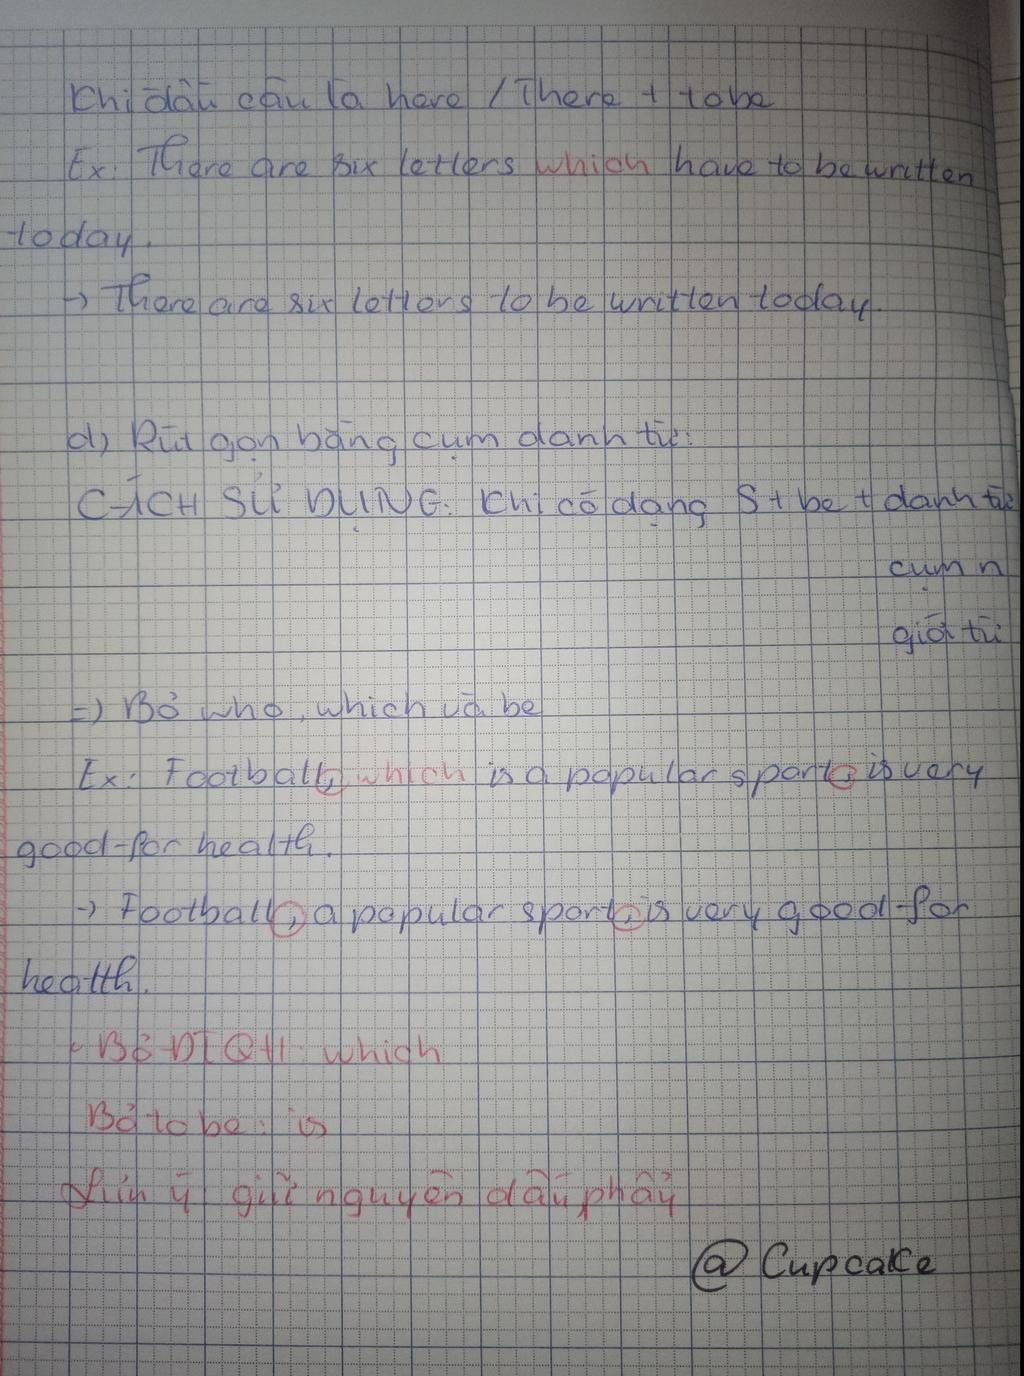 Khi đầu câu là here / There + to be
Ex: There are six letters which have to be written
today.
→ There are six letters to be written today.
d) Rút gọn bằng cụm danh từ:
CÁCH SỬ DỤNG: Khi có dạng S + be + danh từ
cụm n
giới từ
=) Bỏ who, which và be
Ex: Football, which is a popular sport, is very
good for health.
→ Football, a popular sport, is very good for
health.
- Bỏ ĐTQH: which
Bỏ to be: is
Lưu ý giữ nguyên dấu phẩy
@ Cupcake